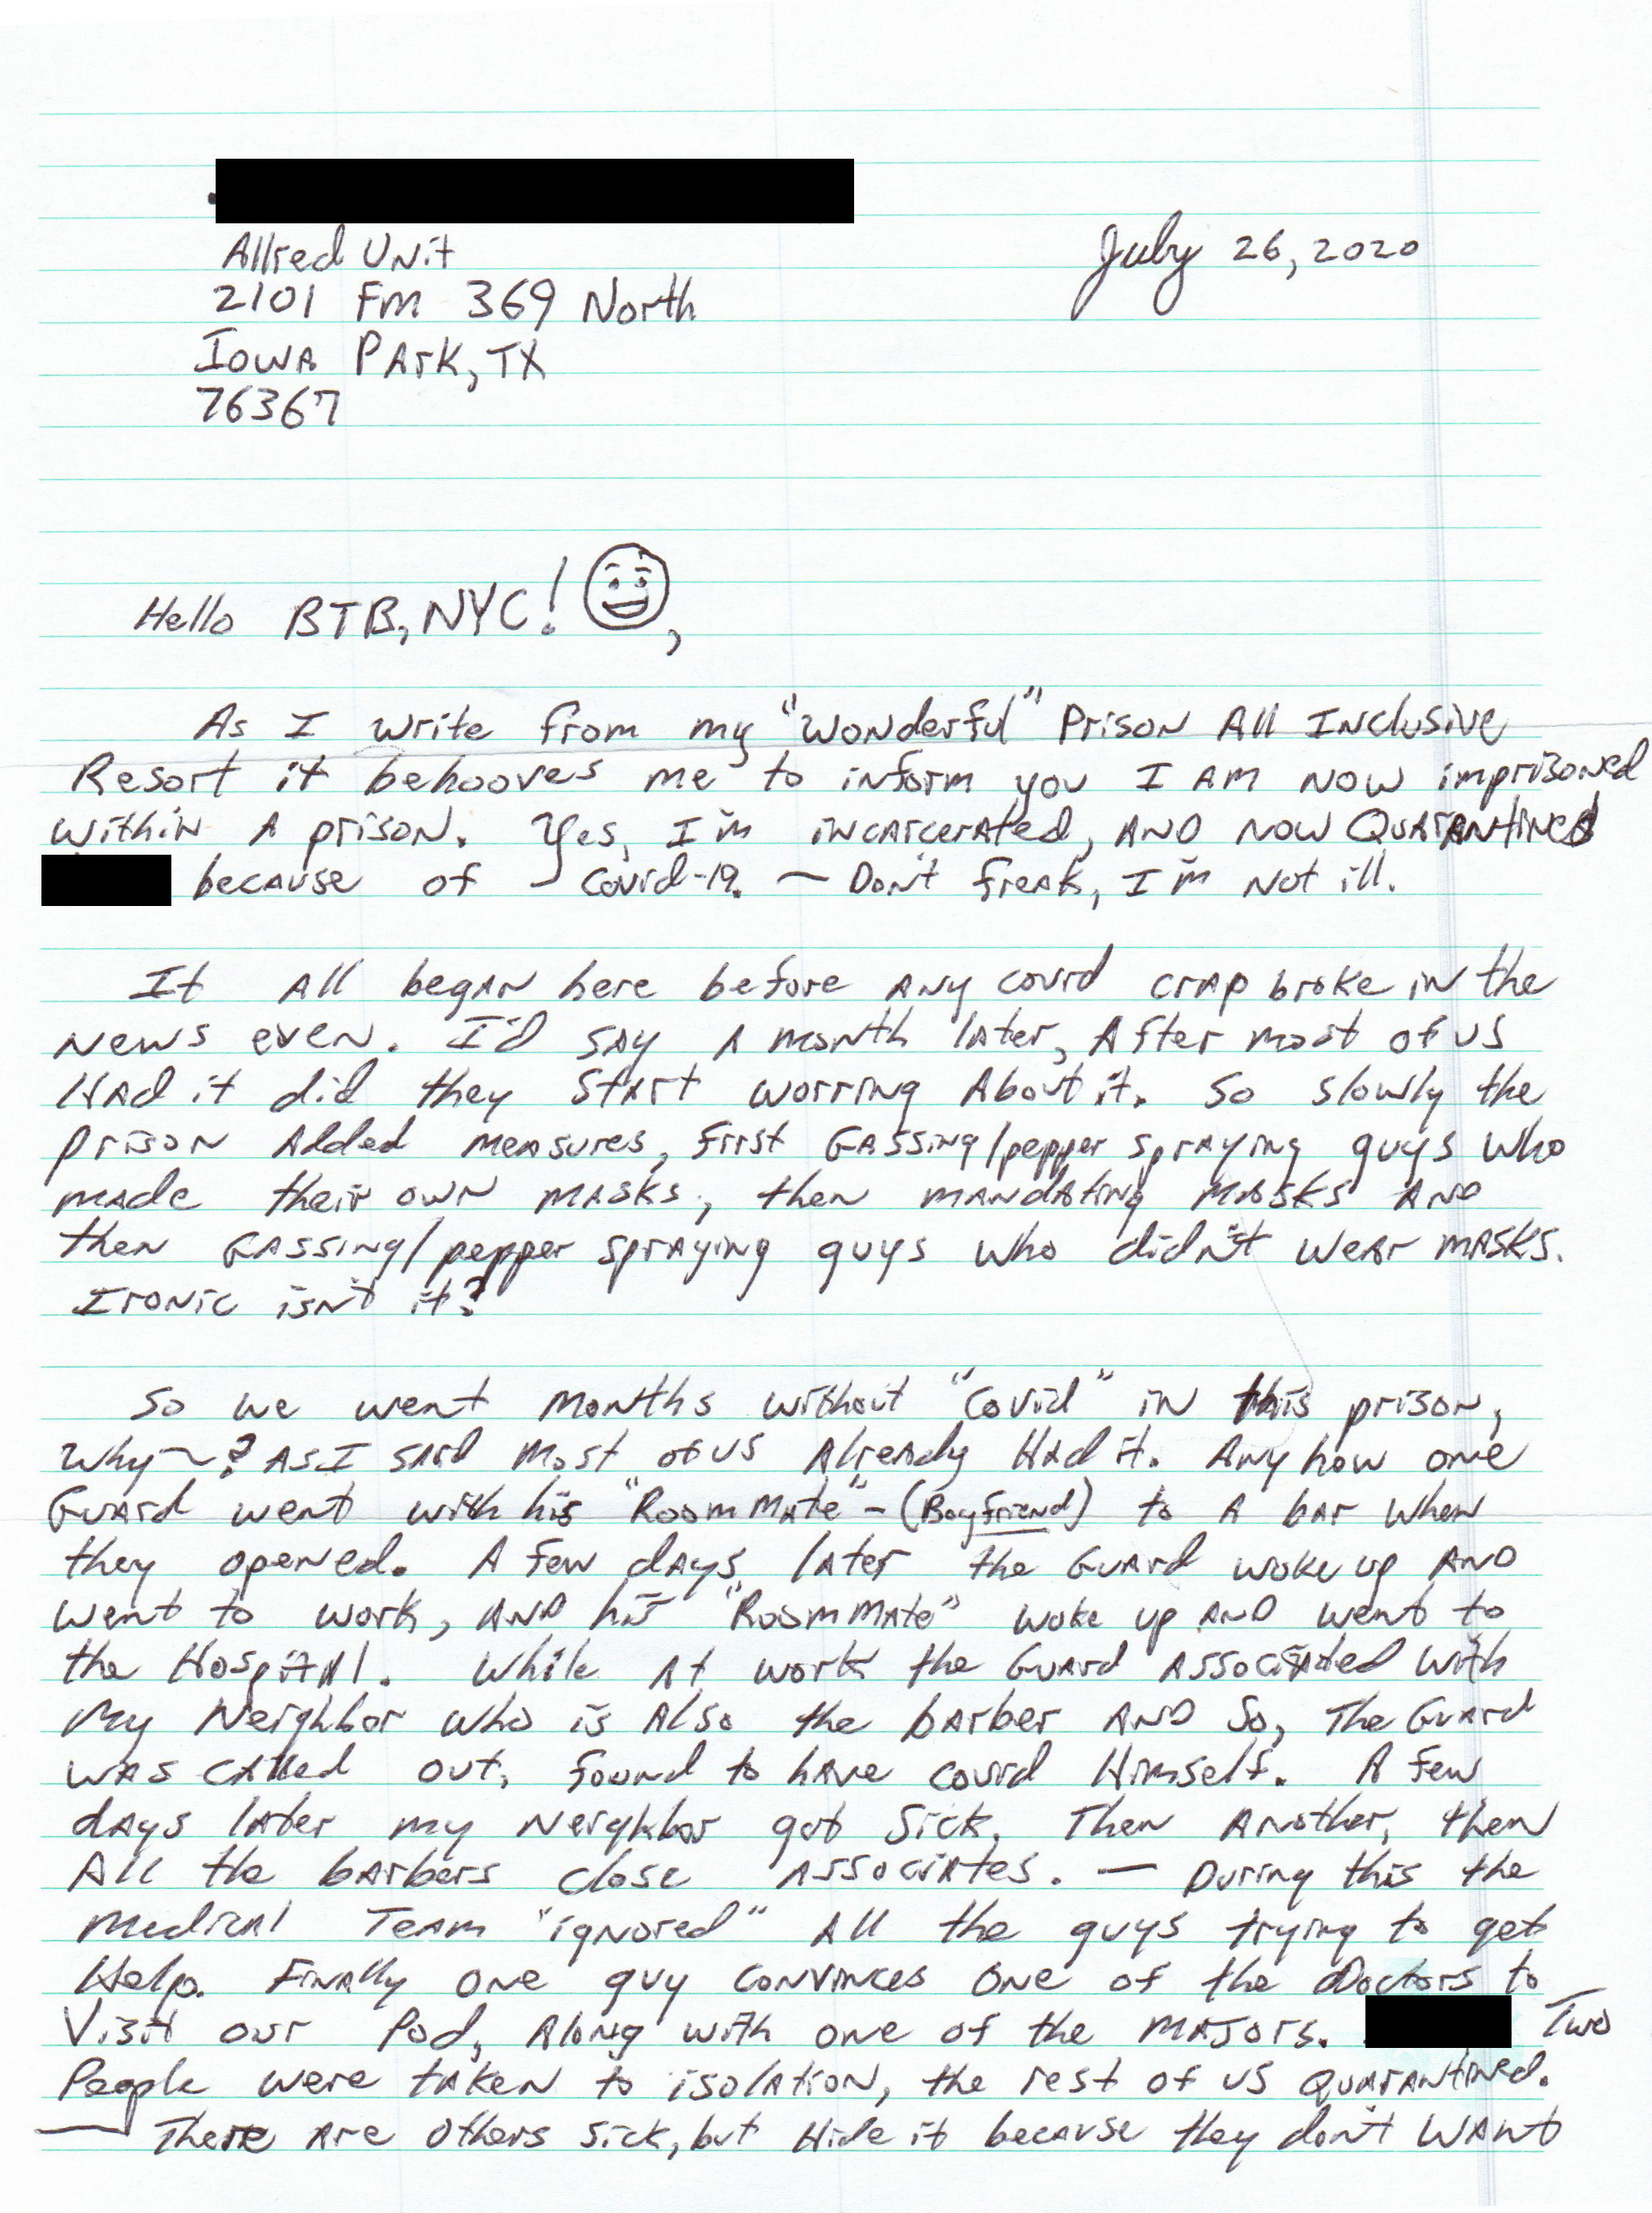 Allred Unit
July 26, 2020
2101 Fm 369 North
Iowa Park, TX
76367
Hello BTB, NYC! ,
As I write from my "Wonderful" Prison All Inclusive
Resort it behooves me to inform you I am now imprisoned
within a prison. Yes, I'm incarcerated, and now Quarantined
because of Covid-19. — Don't freak, I'm not ill.
It all began here before any covid crap broke in the
news even. I'd say a month later, After most of us
Had it did they start worring About it. So slowly the
prison Added measures, first Gassing/pepper spraying guys who
made their own masks, then mandating masks and
then Gassing/pepper spraying guys who didn't wear masks.
Ironic isn't it?
So we went months without "Covid" in this prison,
Why~? As I said most of us Already Had it. Anyhow one
Guard went with his "RoomMate" - (Boyfriend) to a bar when
they opened. A few days later the Guard woke up and
went to work, and his "RoomMate" woke up and went to
the Hospital. While at work the Guard associated with
My Neighbor who is also the barber and so, The Guard
was called out, found to have covid Himself. A few
days later my Neighbor got sick. Then Another, then
All the barbers close associates. — During this the
Medical Team "ignored" all the guys trying to get
Help. Finally one guy convinces one of the Doctors to
Visit our Pod, Along with one of the Majors. Two
People were taken to isolation, the rest of us Quarantined.
— There are others sick, but Hide it because they don't want